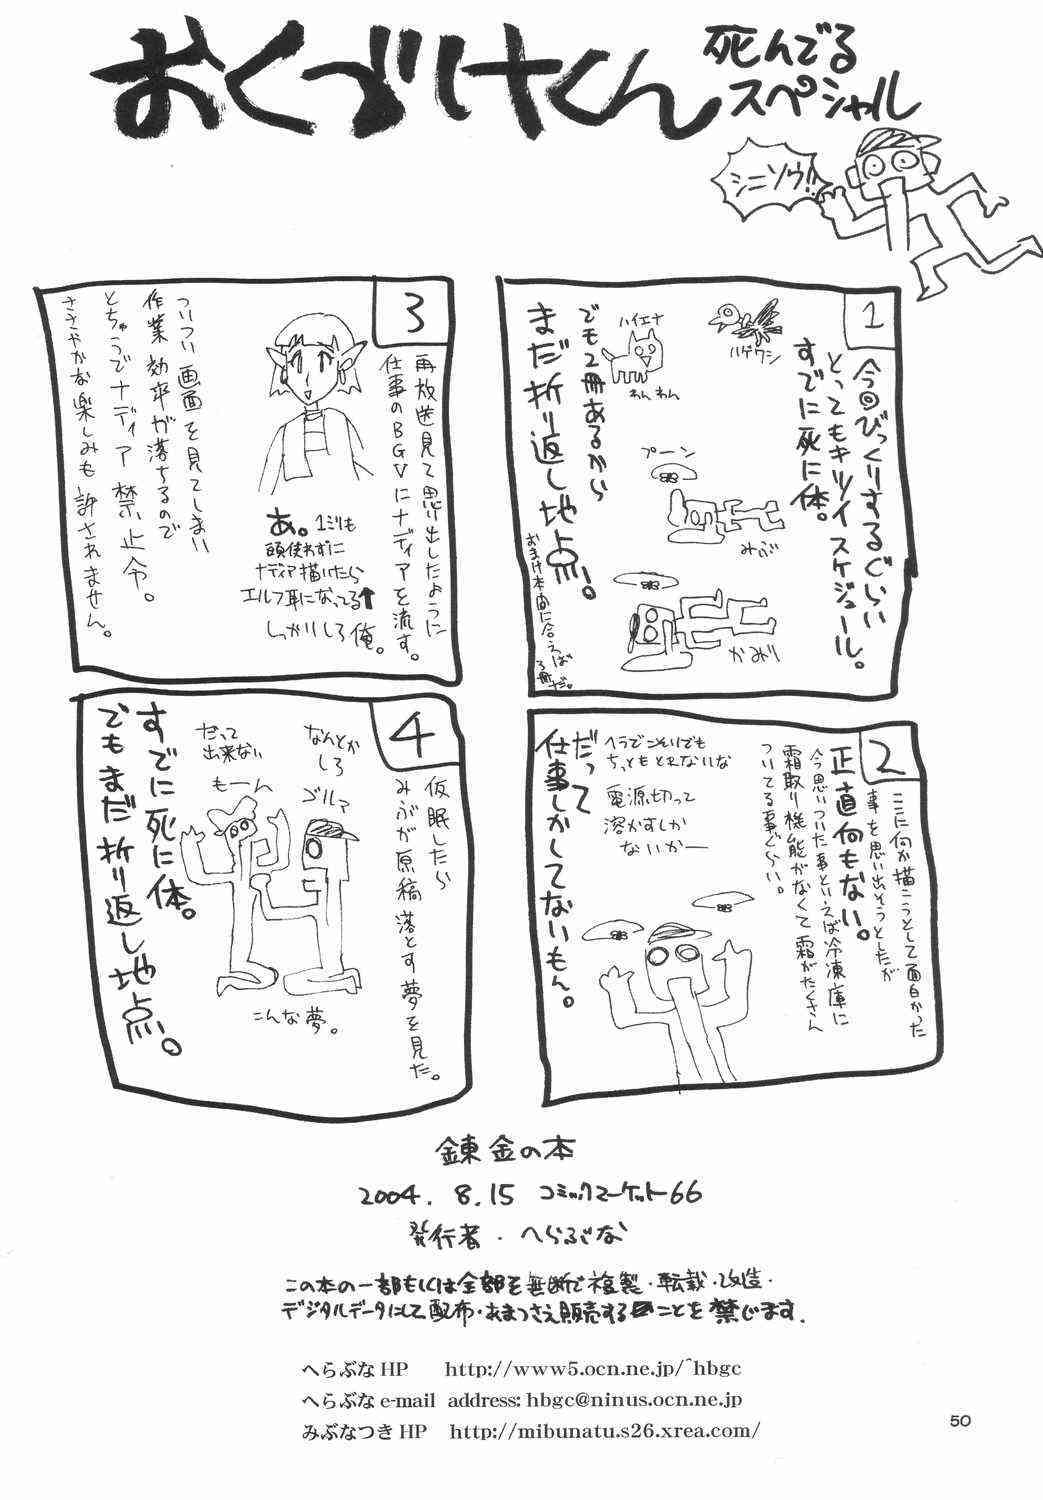 おくづけくん
死んでる
スペシャル
シニソウ!!
1
今回びっくりするぐらい
とってもキツイスケジュール。
すでに死に体。
ハゲワシ
ハイエナ
わんわん
プーン
みぶ
かみり
でも2冊あるから
まだ折り返し地点!
おまけ本間に合えば
3冊だ。
2
ここに何か描こうとして面白かった
事を思い出そうとしたが
正直何もない。
今思いついた事といえば冷凍庫に
霜取り機能がなくて霜がたくさん
ついてる事ぐらい。
ヘラでこそいでも
ちっともとれないな
電源切って
溶かすしか
ないかー
だって
仕事しかしてないもん。
3
再放送見て思い出したように
仕事のBGVにナディアを流す。
あ。1ミリも
頭使わずに
ナディア描いたら
エルフ耳になってる↑
しっかりしろ俺。
ついつい画面を見てしまい
作業効率が落ちるので
とちゅうでナディア禁止令。
ささやかな楽しみも許されません。
4
仮眠したら
みぶが原稿落とす夢を見た。
なんとか
しろ
ゴルァ
だって
出来ない
もーん
こんな夢。
すでに死に体。
でもまだ折り返し地点。
錬金の本
2004.8.15 コミックマーケット66
発行者・へらぶな
この本の一部もしくは全部を無断で複製・転載・改造・
デジタルデータにして配布・あまつさえ販売することを禁じます.
へらぶなHP http://www5.ocn.ne.jp/~hbgc
へらぶなe-mail address: hbgc@ninus.ocn.ne.jp
みぶなつきHP http://mibunatu.s26.xrea.com/
50